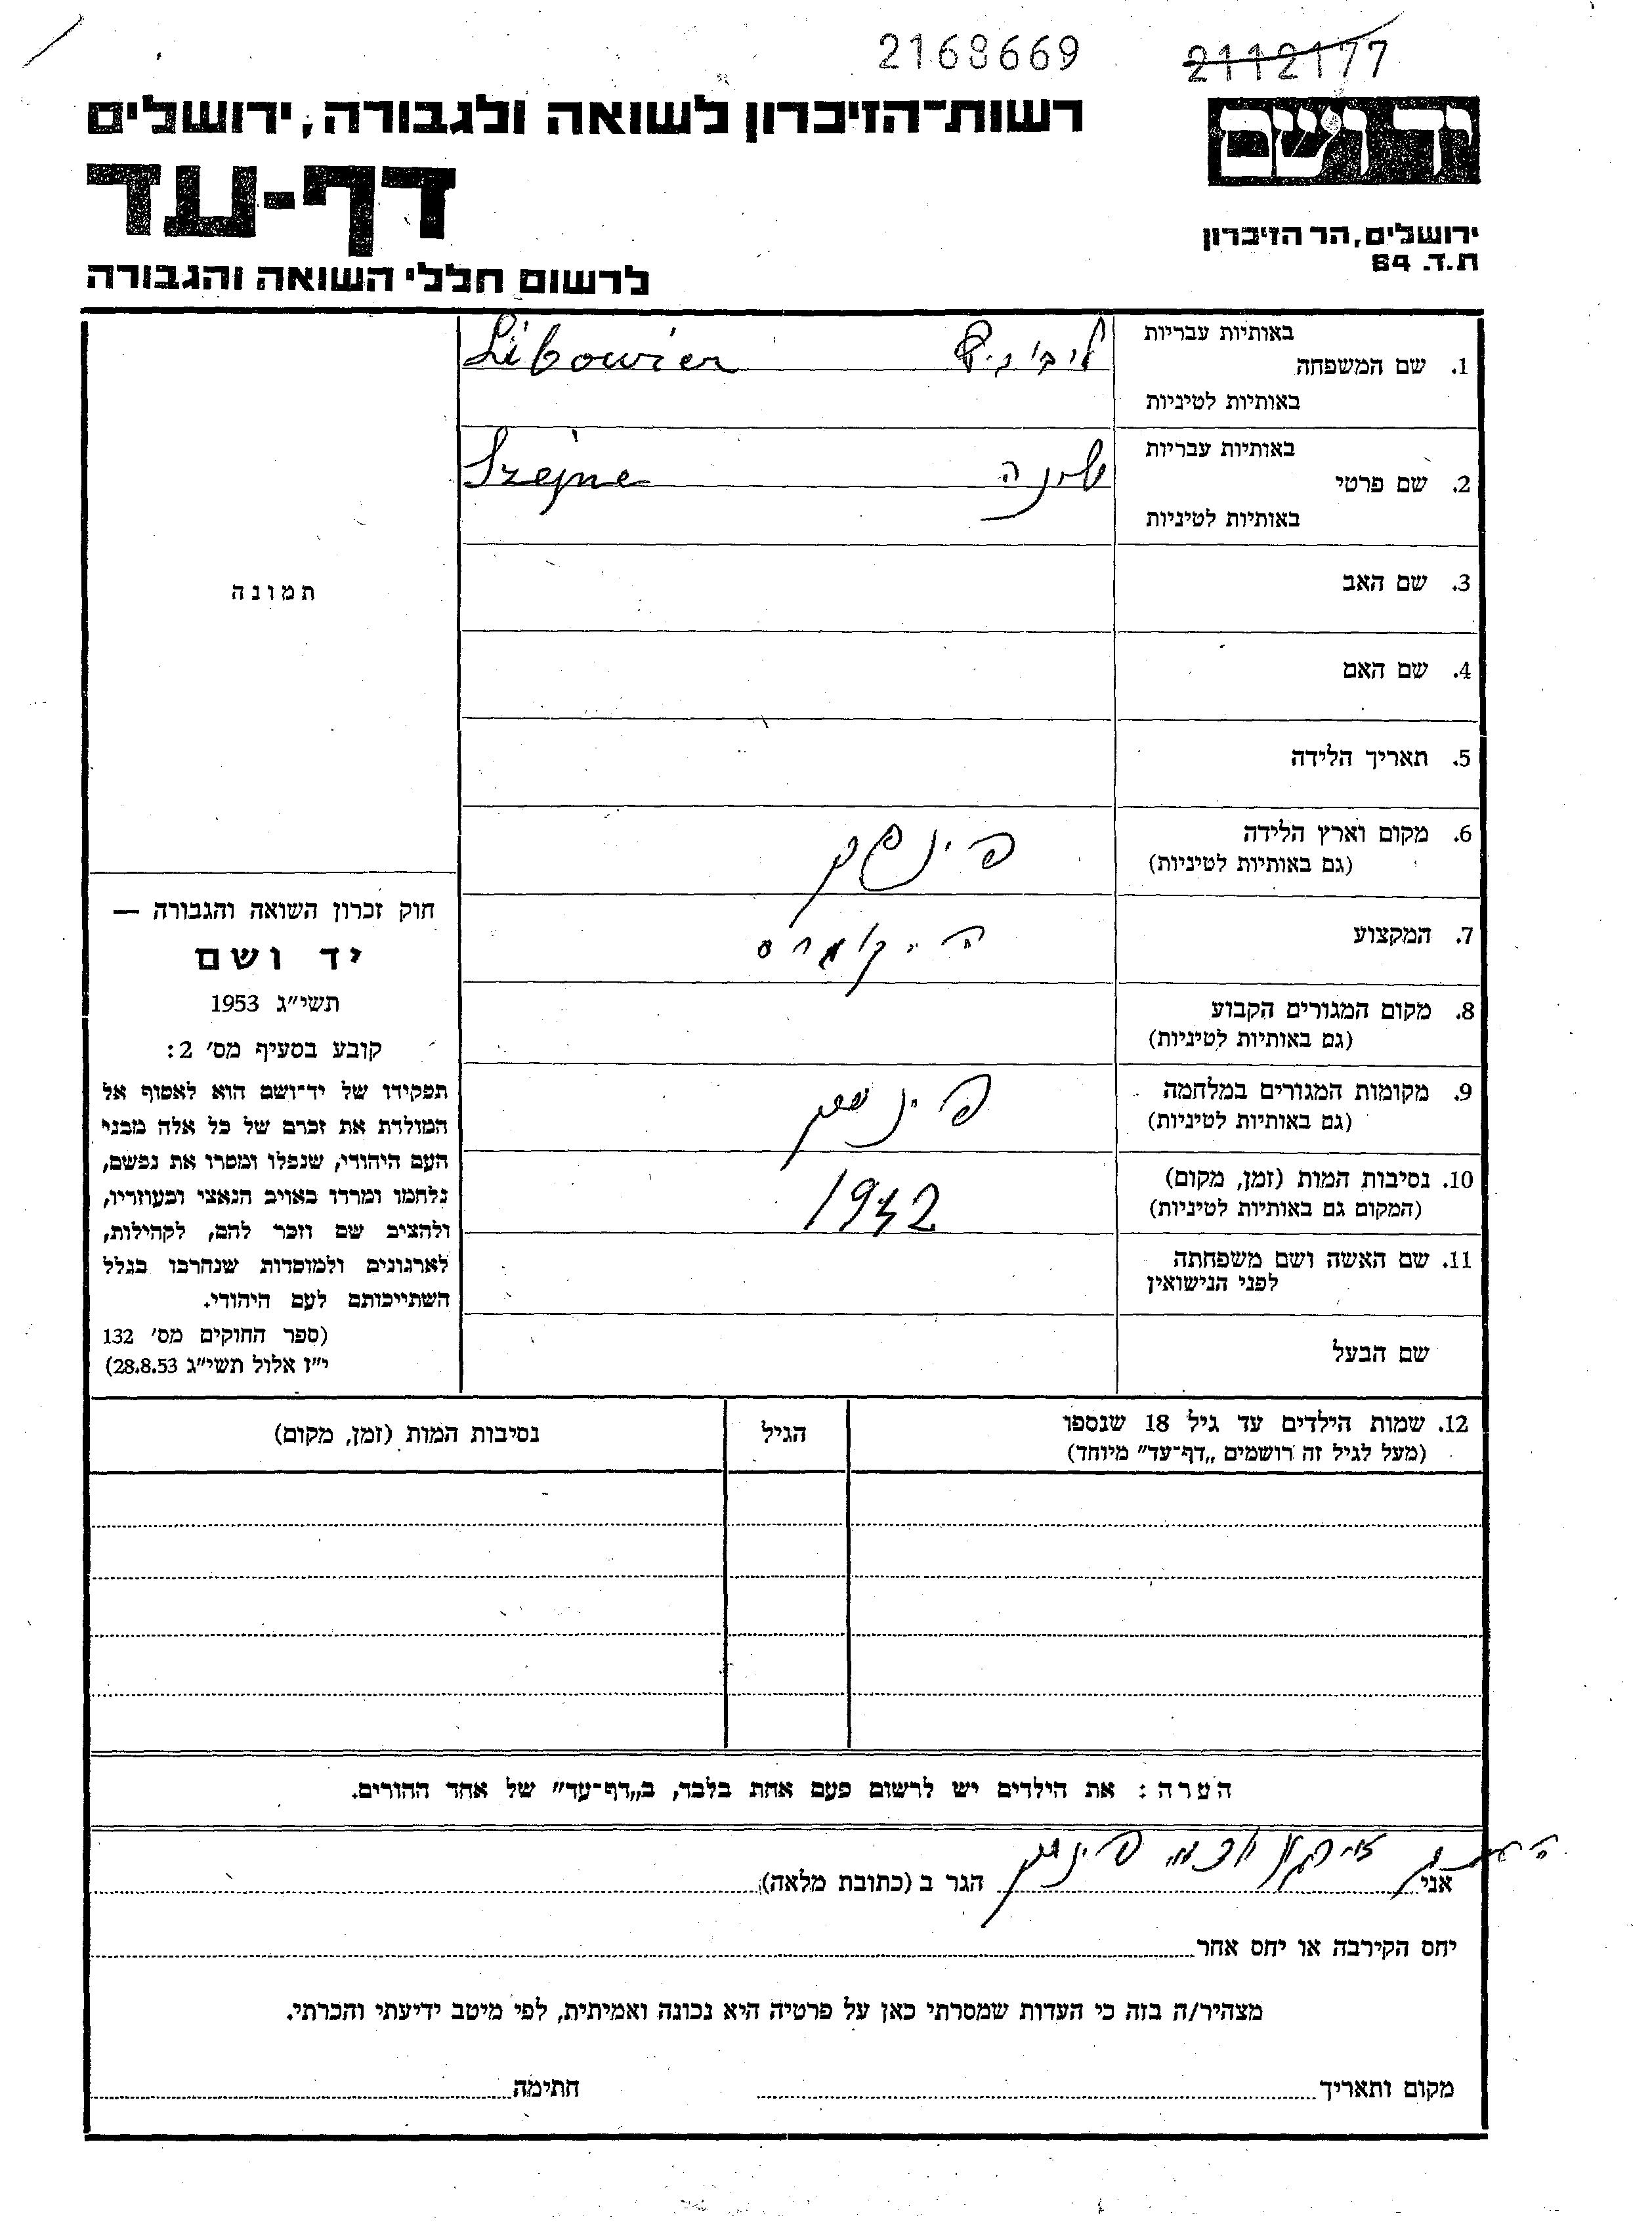 2168669 2112177
רשות־הזיכרון לשואה ולגבורה, ירושלים
יד ושם
דף-עד
ירושלים, הר הזיכרון
ת.ד. 84
לרשום חללי השואה והגבורה
באותיות עבריות
1. שם המשפחה
Libowier
באותיות לטיניות
באותיות עבריות
2. שם פרטי
שינה Szejne
באותיות לטיניות
3. שם האב
4. שם האם
תמונה
5. תאריך הלידה
6. מקום וארץ הלידה
(גם באותיות לטיניות)
פינסק
7. המקצוע
8. מקום המגורים הקבוע
(גם באותיות לטיניות)
9. מקומות המגורים במלחמה
(גם באותיות לטיניות)
פינסק
10. נסיבות המות (זמן, מקום)
(המקום גם באותיות לטיניות)
1942
11. שם האשה ושם משפחתה
לפני הנישואין
שם הבעל
חוק זכרון השואה והגבורה —
יד ושם
תשי״ג 1953
קובע בסעיף מס׳ 2:
תפקידו של יד־ושם הוא לאסוף אל
המולדת את זכרם של כל אלה מבני
העם היהודי, שנפלו ומסרו את נפשם,
נלחמו ומרדו באויב הנאצי ובעוזריו,
ולהציב שם וזכר להם, לקהילות,
לארגונים ולמוסדות שנחרבו בגלל
השתייכותם לעם היהודי.
(ספר החוקים מס׳ 132
י״ז אלול תשי״ג 28.8.53)
12. שמות הילדים עד גיל 18 שנספו
(מעל לגיל זה רושמים „דף־עד״ מיוחד)
הגיל
נסיבות המות (זמן, מקום)
הערה: את הילדים יש לרשום פעם אחת בלבד, ב„דף־עד״ של אחד ההורים.
אני פינסק הגר ב (כתובת מלאה)
יחס הקירבה או יחס אחר
מצהיר/ה בזה כי העדות שמסרתי כאן על פרטיה היא נכונה ואמיתית, לפי מיטב ידיעתי והכרתי.
מקום ותאריך חתימה